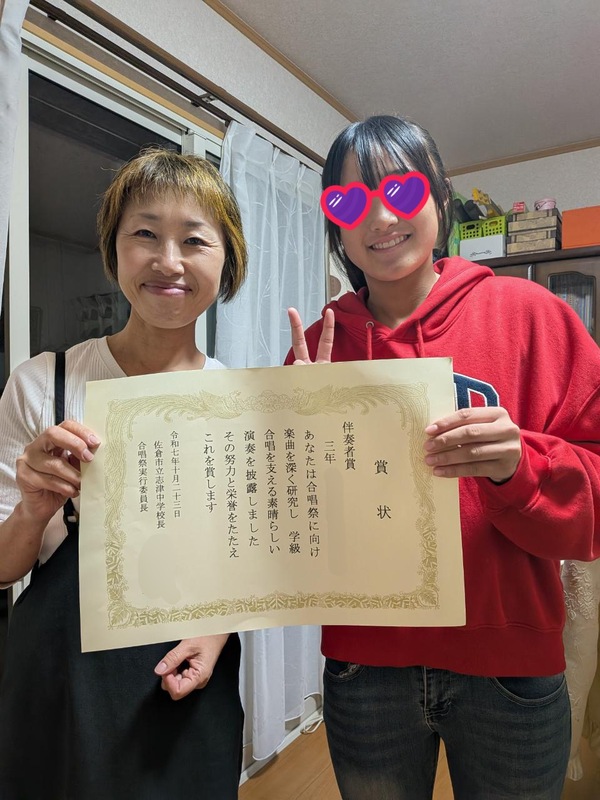 賞状
伴奏者賞
三年
あなたは合唱祭に向け
楽曲を深く研究し 学級
合唱を支える素晴らしい
演奏を披露しました
その努力と栄誉をたたえ
これを賞します
令和七年十月二十三日
佐倉市立志津中学校長
合唱祭実行委員長